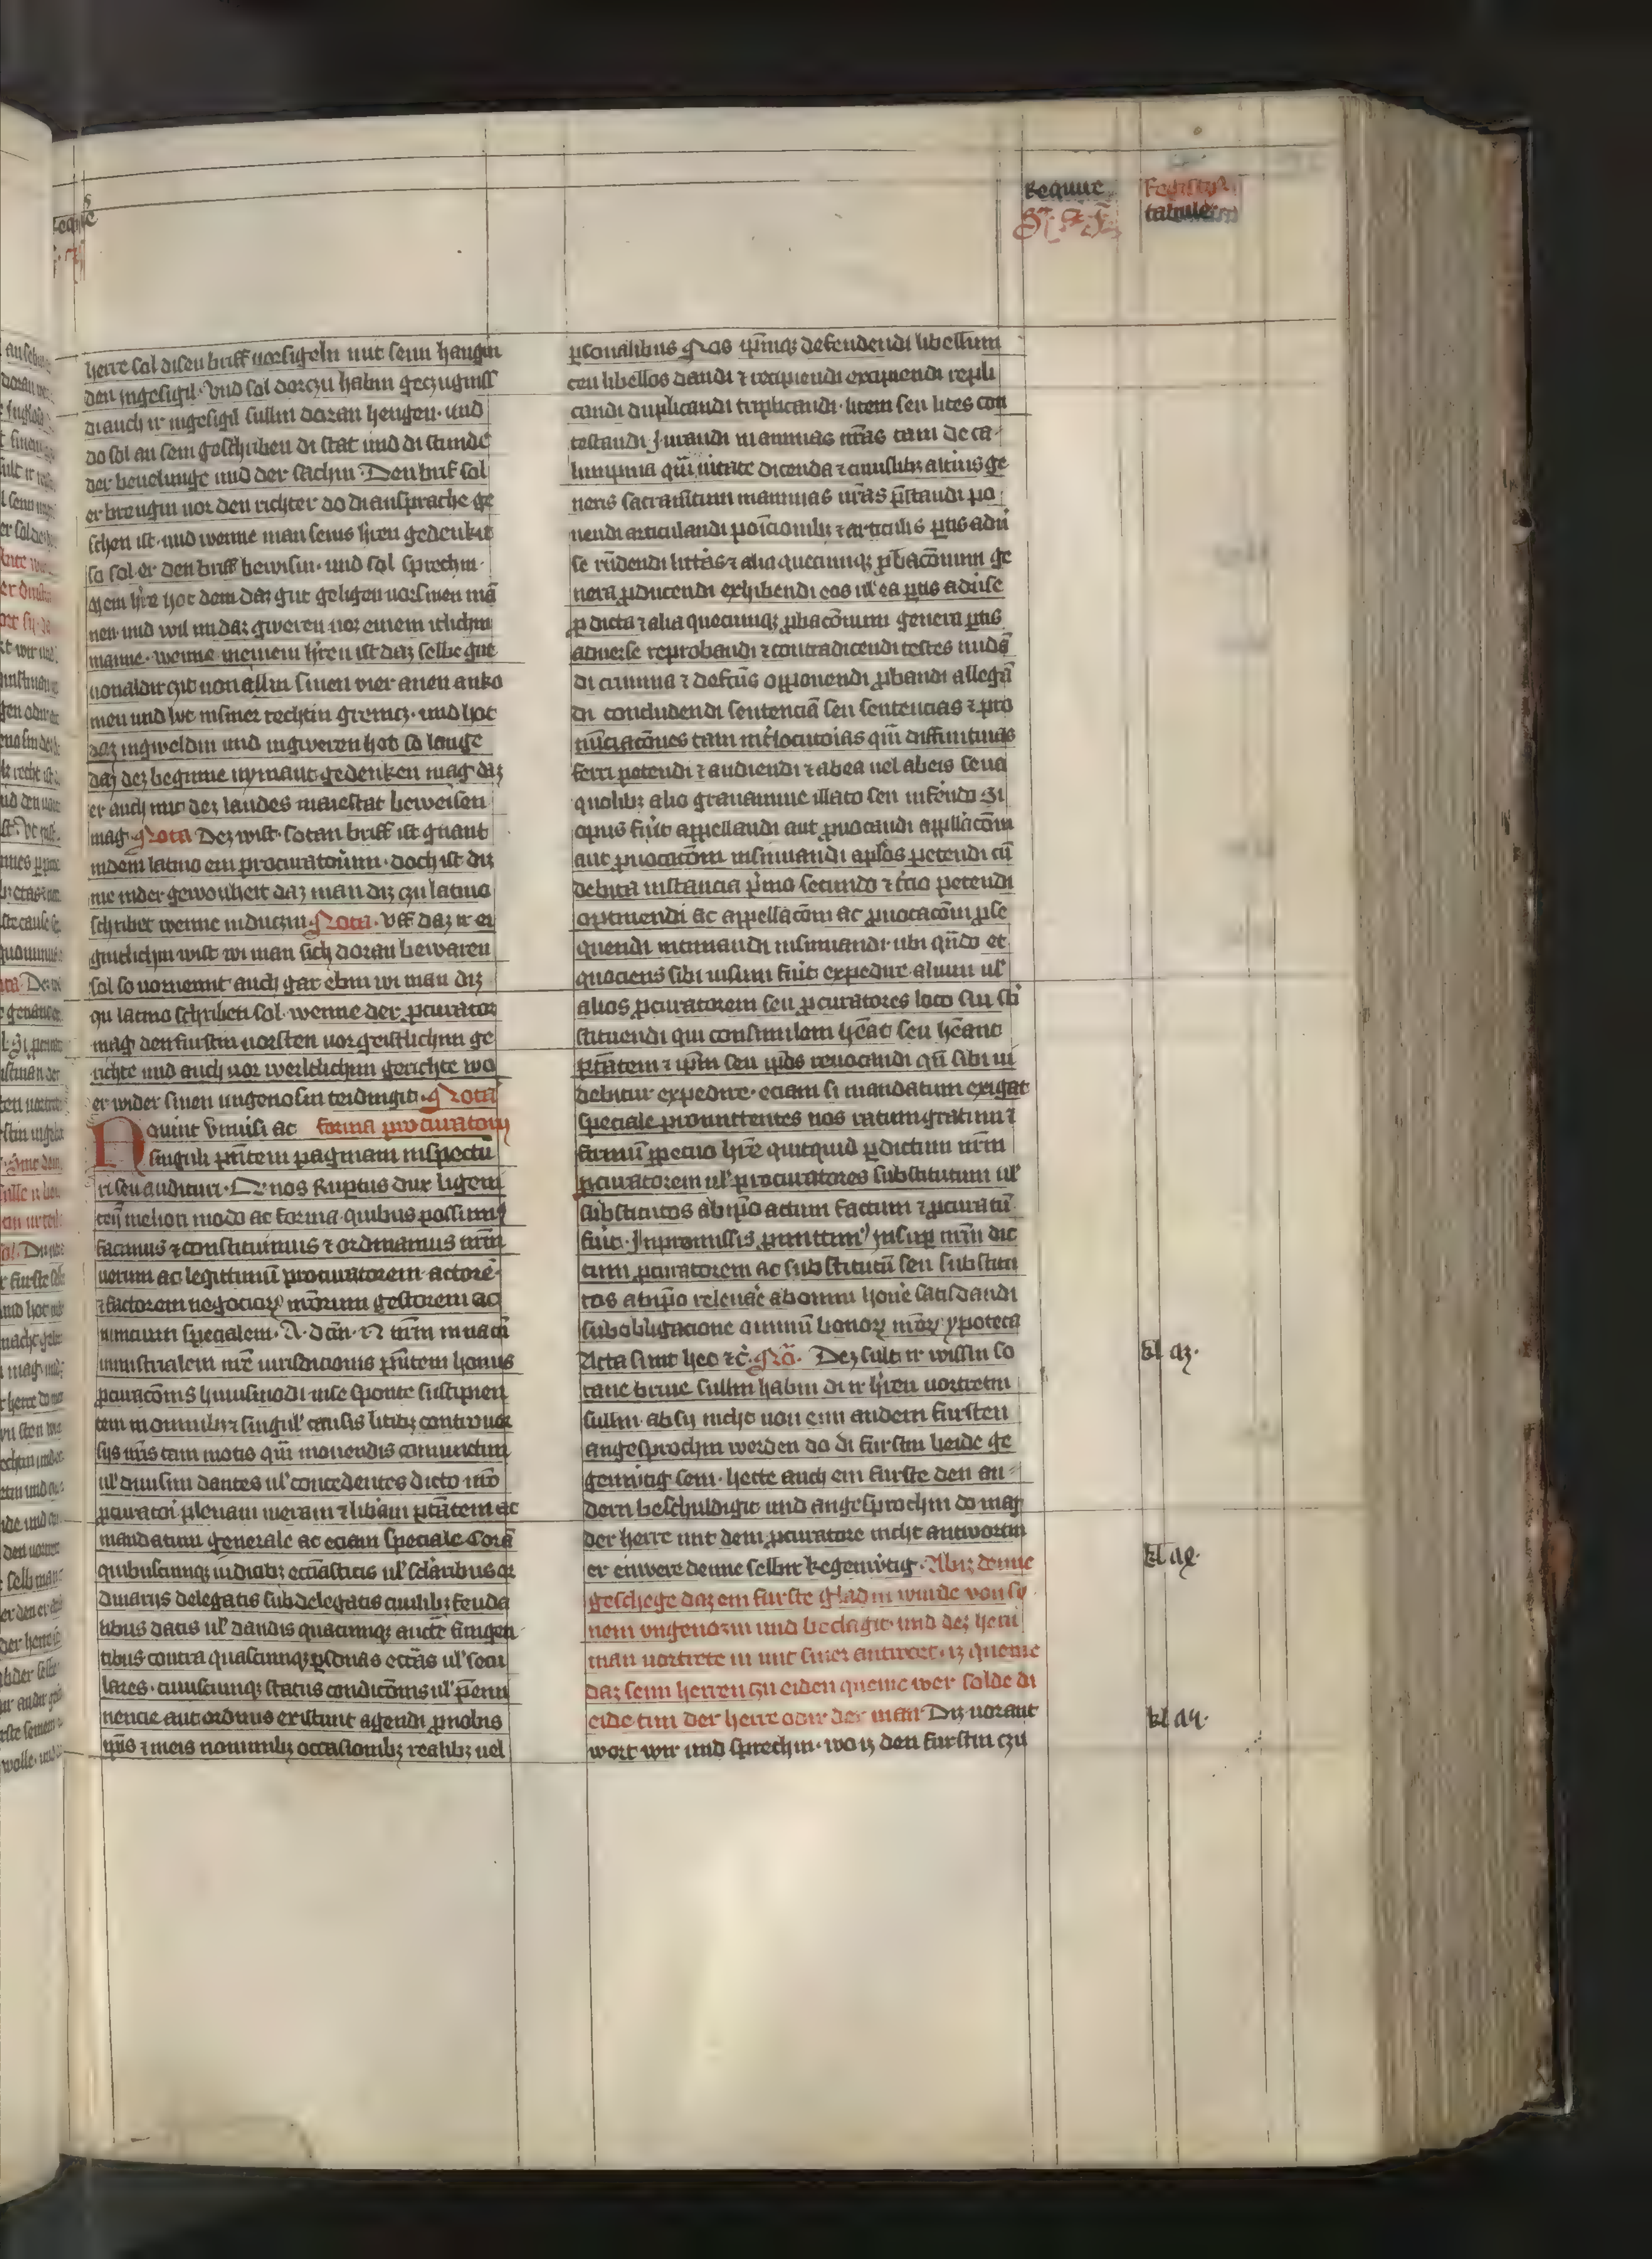 Require
Registrum
tabule
herre sal disen briff vorsigeln mit seim hangin
den ingesigil· Vnd sal dorczu habin geczugniss
di auch ir ingesigil sullin doran hengen· und
do sol an sein geschriben di stat und di stunde
der bevelunge und der sachin Den brif sol
er brengin vor den richter do di ansprache ge
schen ist· und wenne man seins h̓ren gedenkit
so sol er den briff bewisin· und sol sprechin·
mem h̓re hot dem daz gut geligen vor sinen mā
nen und wil im daz gweren vor einem itlichin
manne· wenne meinem h̓ren ist daz selbe gut
von aldir czit von allin sinen vier anen anko
men und
daz in gweldin und in gweren hot so lange
daz dez begunne nymant gedenken mag daz
er auch mit dez landes maiestat beweisen
mag· Nota Dez wist· sotan briff ist gnant
in dem latino ein procuratorium· doch ist diz
me in der gewonheit daz man diz czu latino
schribet wenne in duczin· Nota· vff daz ir ei
gintlichin wist wi man sich doran bewaren
sol so vornemt auch gar ebin wi man diz
czu latino schriben sol· wenne der ꝓcurator
mag den furstin vorsten vor geistlichin ge
richte und auch vor werltlichin gerichte wo
er wider sinen ungenosin teidingit· Nota
Noverint vniusi ac forma procuratorij
singuli pn̄tem paginam inspectu
ri seu audituri· Qr nos Ruptus dux ligeni
ceñ meliori modo ac forma quibus possum9
facimus ⁊ constituimus ⁊ ordinamus nrm̄
verum ac legitimū procuratorem actorē·
⁊ factorem negocioꝝ nr̄orum gestorem ac
nuncium specialem· A· dcm̄·
ministrialem nr̄e iurisdicionis pn̄tem honus
ꝓcuracōnis huiusmodi in se sponte suscipien
tem in omnibꝫ ⁊ singul̓ causis litibꝫ controv̓
sijs nr̄is tam motis qm̄ movendis coniunctim
ul̓ divisim dantes ul̓ concedentes dicto nr̄o
ꝓcuratori plenam meram ⁊ libam ptātem ac
mandatum generale ac eciam speciale Corā
quibuscunqꝫ iudicibꝫ ecc̄iasticis ul̓ sclaribus or
dinarijs delegatis subdelegatis civilibꝫ feuda
libus datis ul̓ dandis quacunqꝫ auctē fungen
tibus contra quascunqꝫ ꝑsonas eccāsul̓ secu
lares· cuiuscunqꝫ status condicōnis ul̓ ꝓemi
nencie aut ordinis existunt agendi ꝓ nobis
⁊ nominibꝫ occasionibꝫ realibꝫ uel
ꝑsonalibus nos ip̄mqꝫ defendendi libellum
ceu libellos dandi ⁊ recipiendi excipiendi repli
candi duplicandi triplicandi· litem seu lites con
testandi Jurandi in animas nr̄as tam de ca·
lumpnia qm̄ veritate dicenda ⁊ cuiuslibꝫ altius ge
neris sacramētum in animas nr̄as p̄standi po
nendi articulandi posicionibꝫ ⁊ articulis ꝑtis adu̓
se rn̄dendi litt̓as ⁊ alia quecunqꝫ ꝓbacōnum ge
nera ꝓducendi exhibendi eos ul̓ ea ꝑtis adu̓se
ꝓducta ⁊ alia quecunqꝫ ꝓbacōnum genera ꝑtis
adverse reprobandi ⁊ contradicendi testes
di crimina ⁊ defctus opponendi ꝓbandi allegā
di concludendi sentenciā seu sentencias ⁊ pro
nūciacōnes tam int̓locutoias qm̄ diffinitivas
ferri petendi ⁊ audiendi ⁊ ab ea uel ab eis seu a
quolibꝫ alio gravamine illato seu inf̓endo Si
opus fu̓it appellandi aut ꝓvocandi appllacōm
aut ꝓvocacōm insinuandi aplōs petendi cū
debita instancia p̓mo secundo ⁊ t̓cio petendi
optinendi ac appellacōm ac ꝓvocacōm ꝓse
quendi intimandi insinuandi· ubi qn̄do et
quociens sibi visum fu̓it expedire· alium ul̓
alios ꝓcuratorem seu ꝓcuratores loco sui sb̓
stituendi qui consimilem hēat seu hēant
ptātem ⁊ ip̄m seu ip̄os revocandi qn̄ sibi vi
debitur expedire· eciam si mandatum exigat
speciale promittentes nos ratum gratum ⁊
firmū ꝑpetuo hr̄e quitquid ꝑ dictum nr̄m
ꝓcuratorem ul̓ procuratores substitutum ul̓
substitutos ab ip̄o actum factum ⁊ ꝓcuratū
fu̓it· In promissis Insuꝑ nr̄m dic
tum ꝓcuratorem ac substitutū seu substitu
tos ab ip̄o relevare ab omni hon̓e satisdandi
sub obligacione omniū bonoꝝ nr̄oꝝ ypoteca
Acta sunt hec ⁊c̄· Nō· Dez sult ir wissin so
tane brive sullin habin di ir h̓ren vortretin
sullin· ab sy nicht von eim andern fursten
angesprochin werden do di furstin beide ge
genwtig sein· hette auch ein furste den an
dern beschuldigit und angesprochin do mag
der herre mit dem ꝓcuratore nicht antwortin
er enwere denne selbir kegenw̓tig· Abir denne
geschege daz ein furste gladin wurde von sy
nem vngenozin und beclagit· und dez hern
man vortrete in mit siner antwort· iz queme
daz seim herren czu eiden queme wer solde di
eide tun der herre odir der man Diz vorant
wort wir und sprechin· wo iz den furstin czu
kl az·